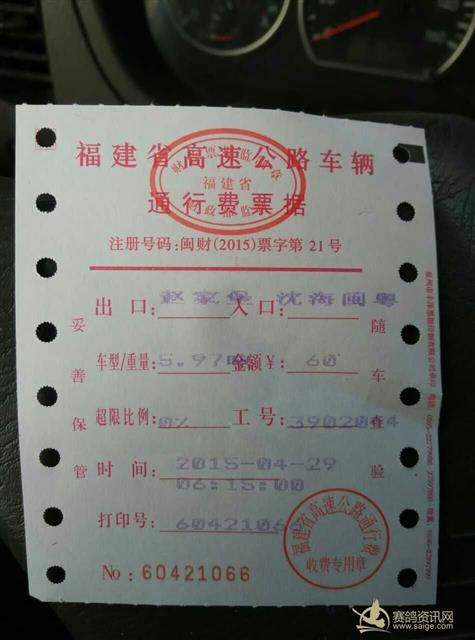 福建省高速公路车辆
通行费票据
福建省
注册号码:闽财(2015)票字第 21号
出口: 赵家堡 入口: 沈海闽粤
车型/重量: 5.97吨 金额¥: 60
超限比例: 0% 工号: 3902054
时间: 2015-04-29
06:15:00
打印号: 60421066
No: 60421066
妥善保管
随车查验
福建省高速公路通行费
收费专用章
赛鸽资讯网
www.saige.com